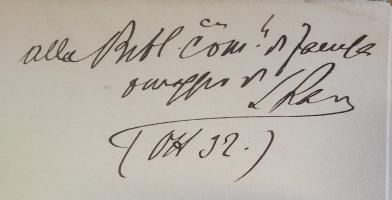 alla Bibl.ca Com.le di Faenza
omaggio di
L Rava
(Ott 32.)